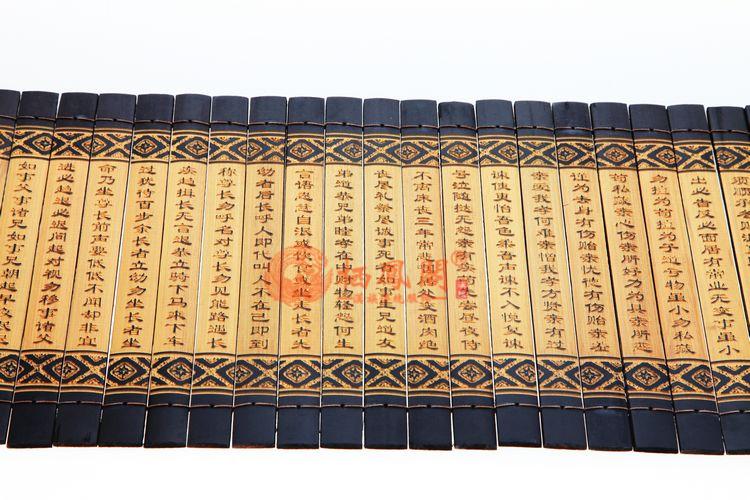 出必告反必面居有常业无变事虽小
勿擅为苟擅为子道亏物虽小勿私藏
苟私藏亲心伤亲所好力为具亲所恶
谨为去身有伤贻亲忧德有伤贻亲羞
亲爱我孝何难亲憎我孝方贤亲有过
谏使更怡吾色柔吾声谏不入悦复谏
号泣随挞无怨亲有疾药先尝昼夜侍
不离床丧三年常悲咽居处变酒肉绝
丧尽礼祭尽诚事死者如事生兄道友
弟道恭兄弟睦孝在中财物轻怨何生
言语忍忿自泯或饮食或坐走长者先
幼者后长呼人即代叫人不在己即到
称尊长勿呼名对尊长勿见能路遇长
疾趋揖长无言退恭立骑下马乘下车
过犹待百步余长者立幼勿坐长者坐
命乃坐尊长前声要低低不闻却非宜
进必趋退必迟问起对视勿移事诸父
如事父事诸兄如事兄朝起早夜眠
西凤盟